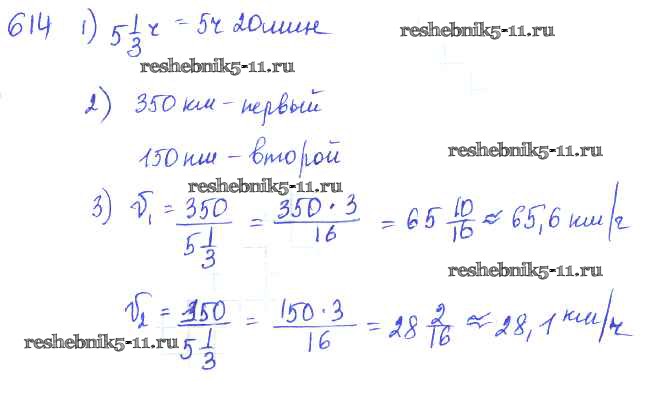 614 1) 5 1/3 ч = 5ч 20мин
reshebnik5-11.ru
reshebnik5-11.ru
2) 350 км – первый
150 км – второй
reshebnik5-11.ru
reshebnik5-11.ru
3) v₁ = 350 / 5 1/3 = 350 · 3 / 16 = 65 10/16 ≈ 65,6 км/ч
reshebnik5-11.ru
v₂ = 150 / 5 1/3 = 150 · 3 / 16 = 28 2/16 ≈ 28,1 км/ч
reshebnik5-11.ru